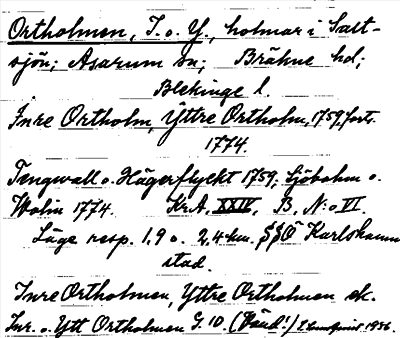 Ortholmen, I. o. Y., holmar i Salt-
sjön; Asarum sn; Bräkne hd;
Blekinge l.
Inre Ortholm, Yttre Ortholm, 1759, forts.
1774.
Tengwall o. Hägerflyckt 1759; Sjöbohm o.
Wolin 1774. Kr.A. XXIV, B, N:o VI.
Läge resp. 1,9 o. 2,4 km. SSÖ Karlshamns
stad.
Inre Ortholmen, Yttre Ortholmen ek.
Inr. o. Ytt Ortholmen G. 10. 1936.